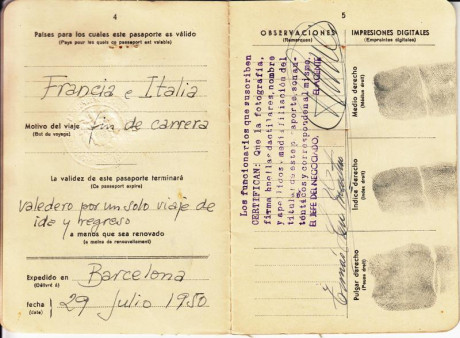 4
Países para los cuales este pasaporte es válido
(Pays pour lesquels ce passeport est valable)
Francia e Italia
Motivo del viaje fin de carrera
(But du voyage)
La validez de este pasaporte terminará
(Ce passeport expire)
Valedero por un solo viaje de
ida y regreso
a menos que sea renovado
(a moins de renouvellement)
Expedido en Barcelona
(Délivré à)
fecha 29 julio 1950
(date)
5
OBSERVACIONES
(Remarques)
Los funcionarios que suscriben
CERTIFICAN: Que la fotografía,
firma huellas dactilares, nombre
y apellidos
titular de este pasaporte, son
ténticos y corresponden al mismo.
EL JEFE DEL NEGOCIADO,
EL AGENTE
IMPRESIONES DIGITALES
(Empreintes digitales)
Medio derecho
(Médius droit)
Índice derecho
(Index droit)
Pulgar derecho
(Pouce droit)